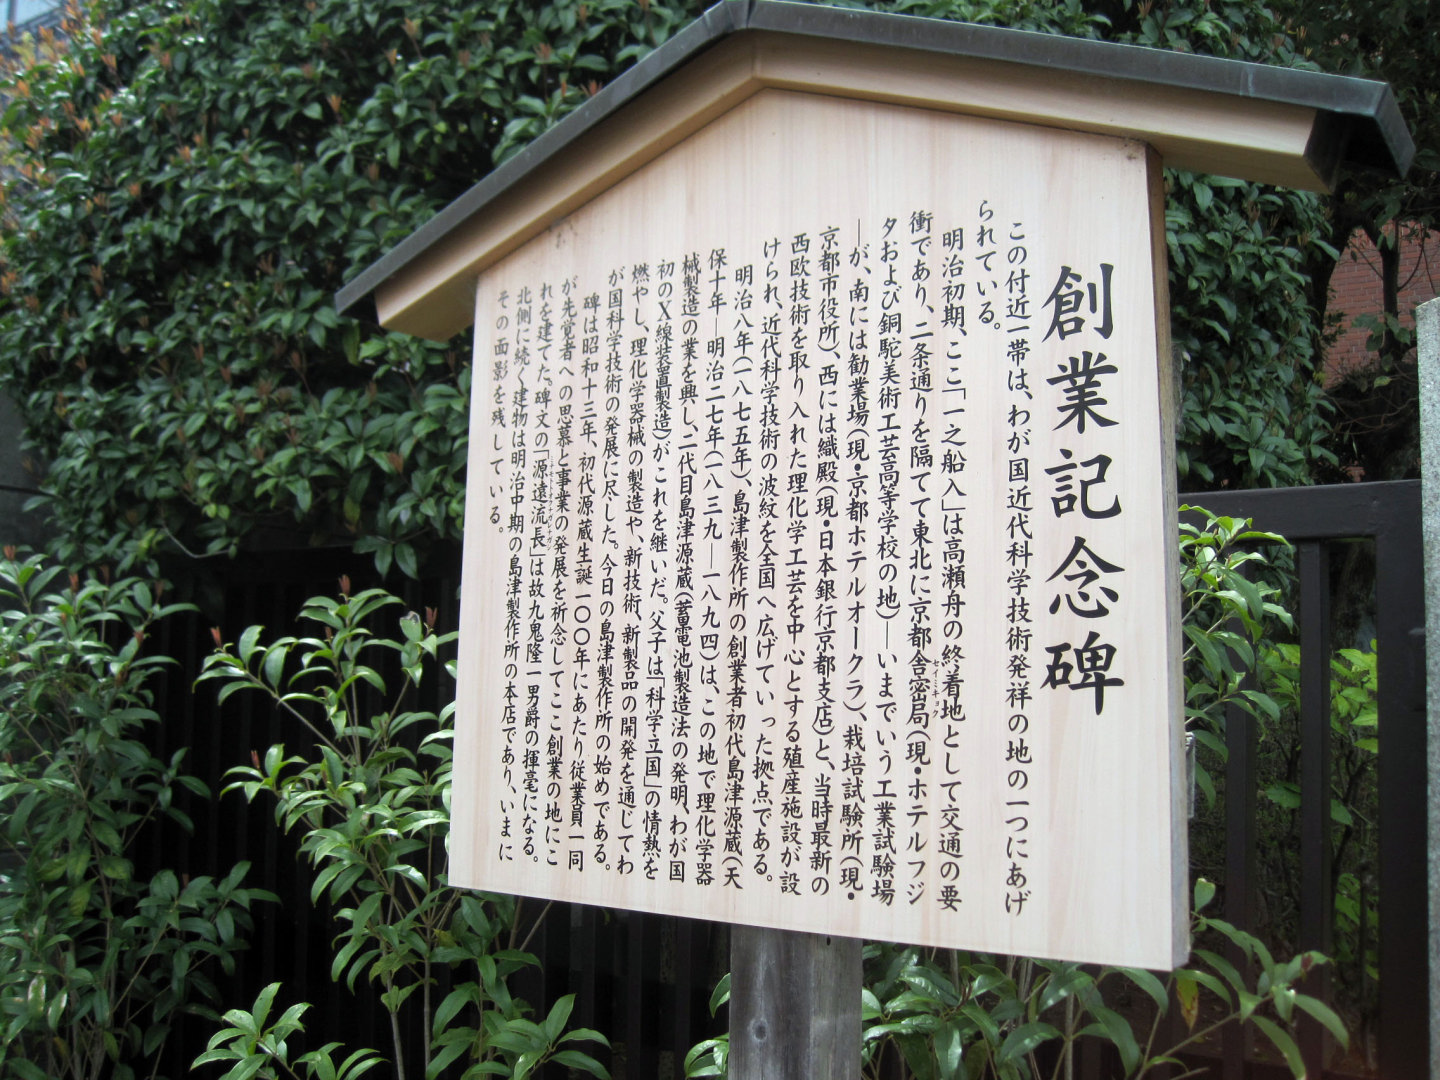 創業記念碑
この付近一帯は、わが国近代科学技術発祥の地の一つにあげ
られている。
明治初期、ここ「一之船入」は高瀬舟の終着地として交通の要
衝であり、二条通りを隔てて東北に京都舎密局(現・ホテルフジ
セイミキョク
タおよび銅駝美術工芸高等学校の地)―いまでいう工業試験場
―が、南には勧業場(現・京都ホテルオークラ)、栽培試験所(現・
京都市役所)、西には織殿(現・日本銀行京都支店)と、当時最新の
西欧技術を取り入れた理化学工芸を中心とする殖産施設が設
けられ、近代科学技術の波紋を全国へ広げていった拠点である。
明治八年(一八七五年)、島津製作所の創業者初代島津源蔵(天
保十年―明治二七年(一八三九―一八九四)は、この地で理化学器
械製造の業を興し、二代目島津源蔵(蓄電池製造法の発明、わが国
初のX線装置製造)がこれを継いだ。父子は「科学立国」の情熱を
燃やし、理化学器械の製造や、新技術、新製品の開発を通じてわ
が国科学技術の発展に尽した。今日の島津製作所の始めである。
碑は昭和十三年、初代源蔵生誕一〇〇年にあたり従業員一同
が先覚者への思慕と事業の発展を祈念してここ創業の地にこ
れを建てた。碑文の「源遠流長」は故九鬼隆一男爵の揮毫になる。
北側に続く建物は明治中期の島津製作所の本店であり、いまに
その面影を残している。